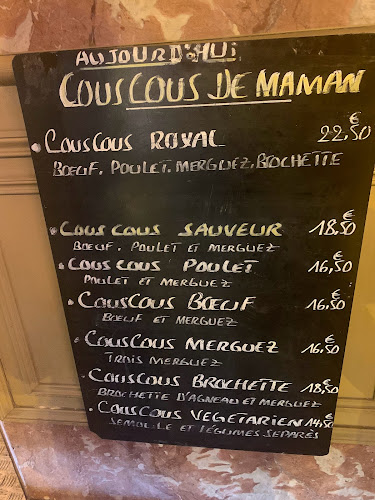 AUJOURD'HUI
COUSCOUS DE MAMAN
• COUSCOUS ROYAL 22,50 €
BŒUF. POULET. MERGUEZ, BROCHETTE
• COUSCOUS SAUVEUR 18,50 €
BŒUF. POULET ET MERGUEZ
• COUSCOUS POULET 16,50 €
POULET ET MERGUEZ
• COUSCOUS BŒUF 16,50 €
BŒUF ET MERGUEZ
• COUSCOUS MERGUEZ 16,50 €
TROIS MERGUEZ
• COUSCOUS BROCHETTE 18,50 €
BROCHETTE D'AGNEAU ET MERGUEZ
• COUSCOUS VEGETARIEN 14,50 €
SEMOULE ET LÉGUMES SEPARÈS